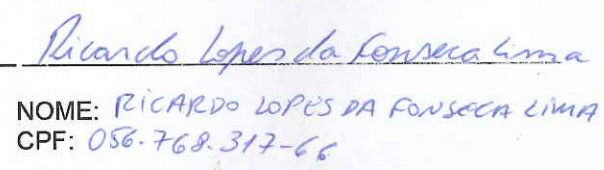 Ricardo Lopes da Fonseca Lima
NOME: RICARDO LOPES DA FONSECA LIMA
CPF: 056.768.317-66